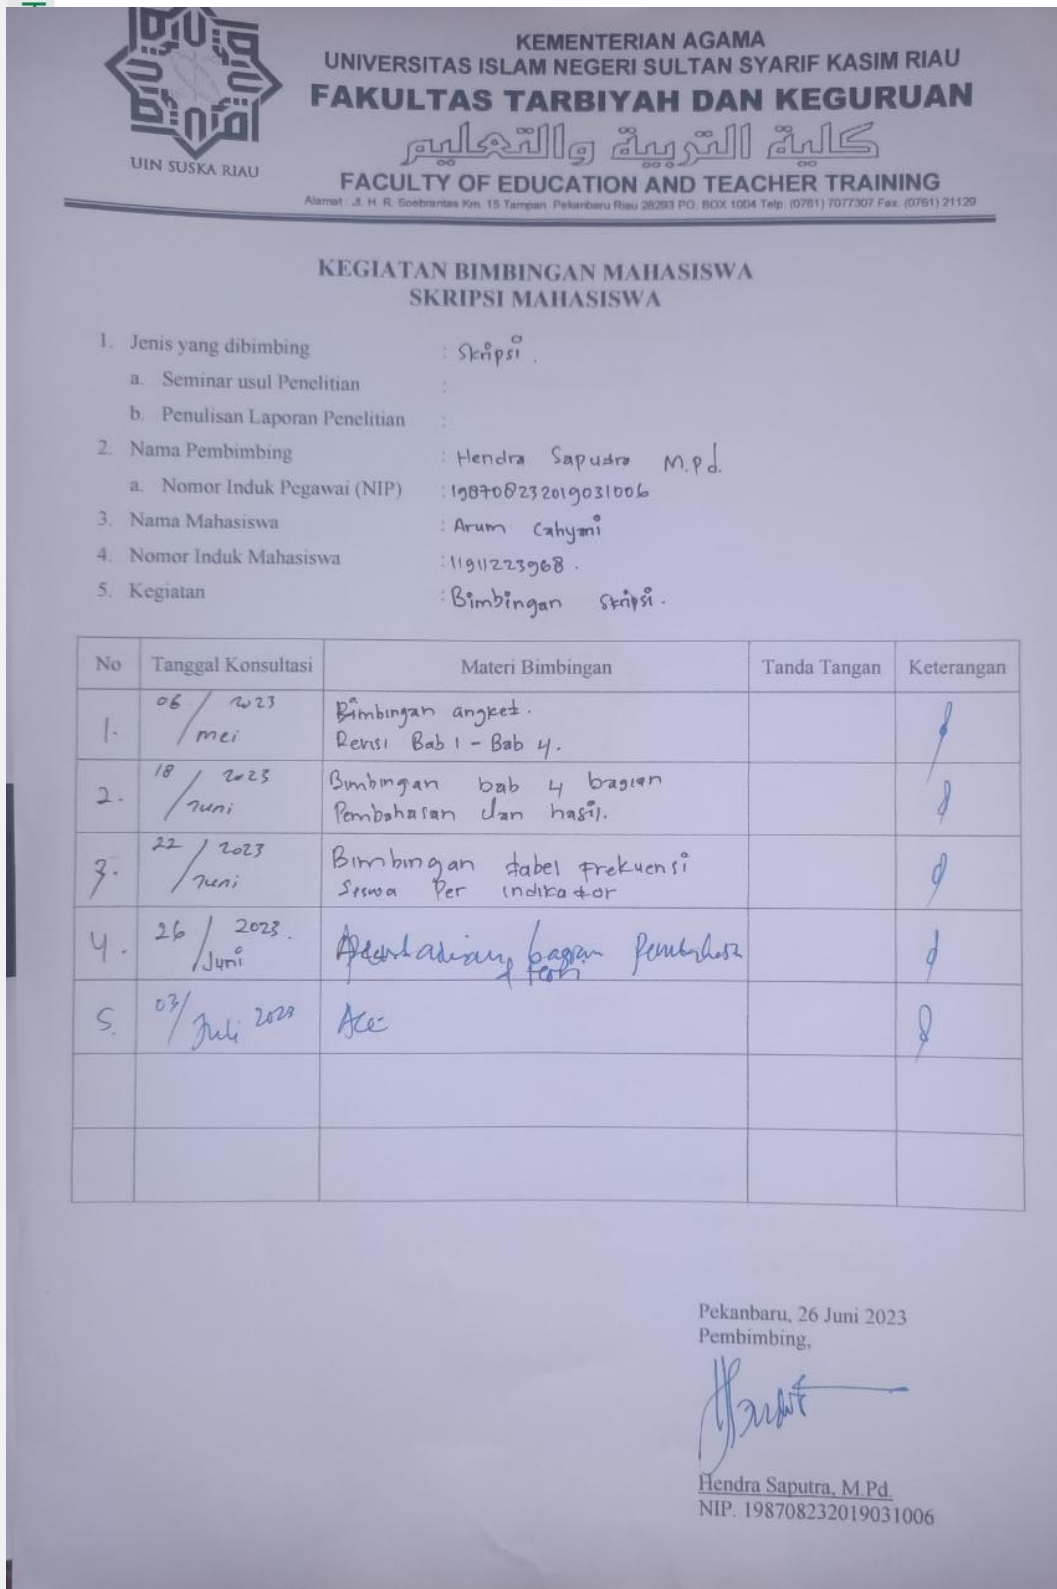 UIN SUSKA RIAU
KEMENTERIAN AGAMA
UNIVERSITAS ISLAM NEGERI SULTAN SYARIF KASIM RIAU
FAKULTAS TARBIYAH DAN KEGURUAN
كلية التربية والتعليم
FACULTY OF EDUCATION AND TEACHER TRAINING
Alamat : Jl. H. R. Soebrantas Km. 15 Tampan Pekanbaru Riau 28293 PO. BOX 1004 Telp. (0761) 7077307 Fax. (0761) 21129
KEGIATAN BIMBINGAN MAHASISWA
SKRIPSI MAHASISWA
1. Jenis yang dibimbing : Skripsi .
a. Seminar usul Penelitian :
b. Penulisan Laporan Penelitian :
2. Nama Pembimbing : Hendra Saputra M.Pd.
a. Nomor Induk Pegawai (NIP) : 198708232019031006
3. Nama Mahasiswa : Arum Cahyani
4. Nomor Induk Mahasiswa : 11911223968 .
5. Kegiatan : Bimbingan Skripsi .
No Tanggal Konsultasi Materi Bimbingan Tanda Tangan Keterangan
1. 06 / mei 2023 Bimbingan angket.
Revisi Bab 1 - Bab 4.
2. 18 / Juni 2023 Bimbingan bab 4 bagian
Pembahasan dan hasil.
3. 22 / Juni 2023 Bimbingan tabel Frekuensi
Siswa Per indikator
4. 26 / Juni 2023. bagian
5. 03/ Juli 2023 Acc
Pekanbaru, 26 Juni 2023
Pembimbing,
Hendra Saputra, M.Pd.
NIP. 198708232019031006